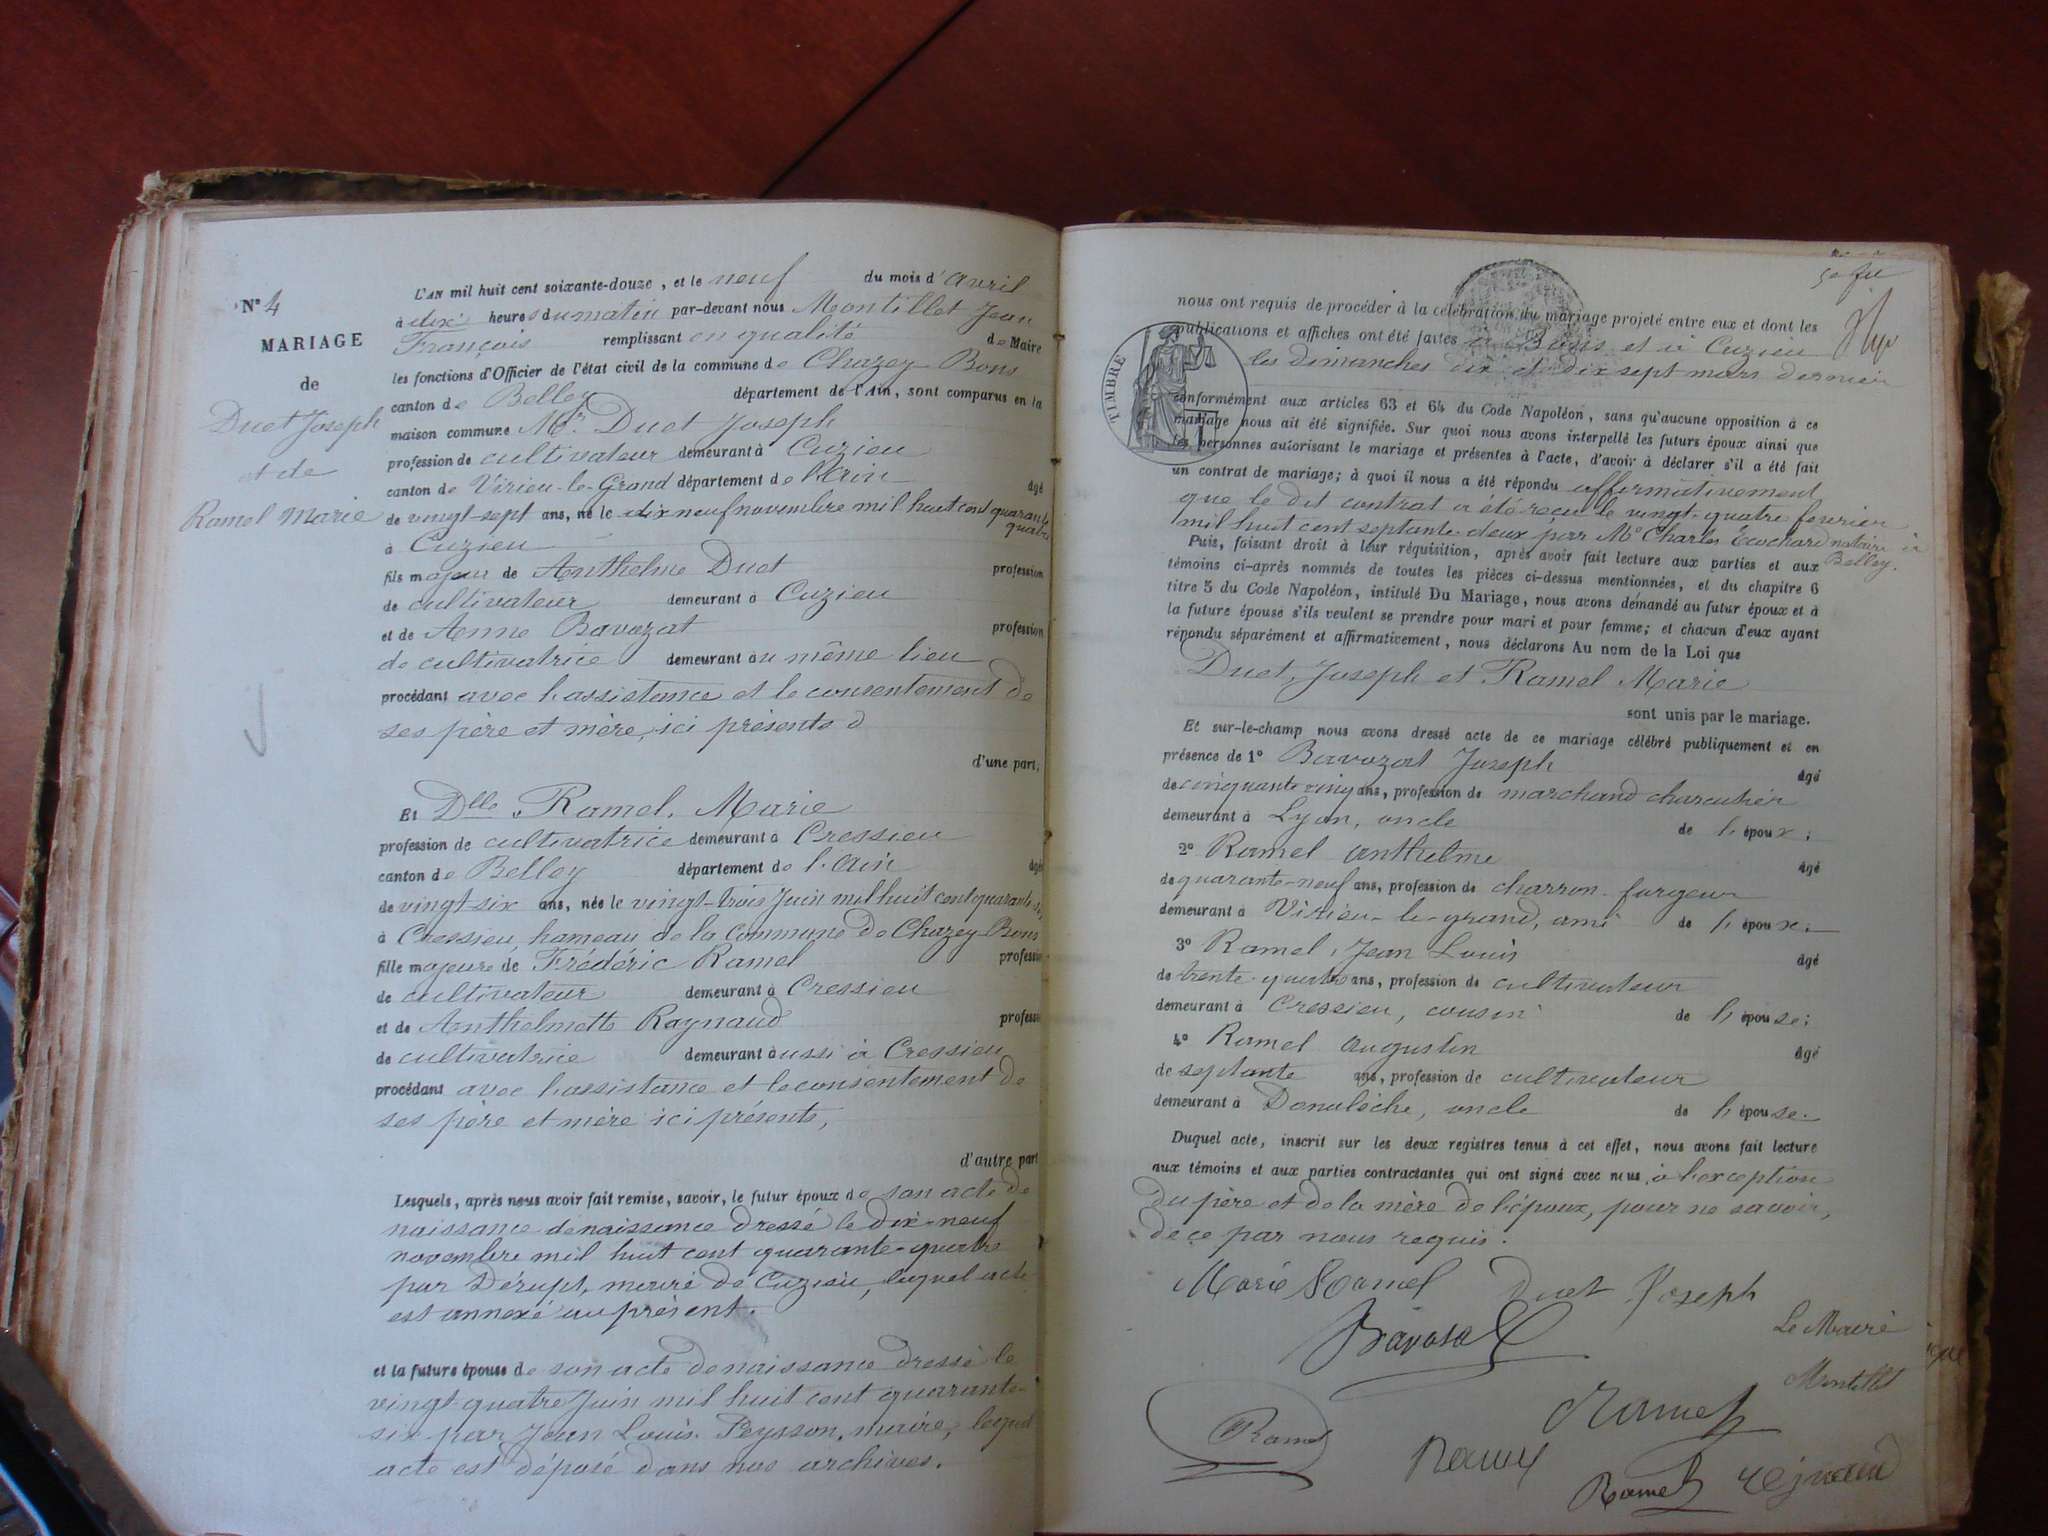 N° 4
MARIAGE
de
Duet Joseph
et de
Ramel Marie
L'AN mil huit cent soixante-douze, et le neuf du mois d'avril
à dix heures du matin par-devant nous Montillet Jean
François remplissant en qualité de Maire
les fonctions d'Officier de l'état civil de la commune de Chazey-Bons
canton de Belley département de l'Ain, sont comparus en la
maison commune Mr Duet Joseph
profession de cultivateur demeurant à Cuzieu
canton de Virieu-le-Grand département de l'Ain âgé
de vingt-sept ans, né le dix neuf novembre mil huit cent quarante
quatre
à Cuzieu
fils majeur de Anthelme Duet profession
de cultivateur demeurant à Cuzieu
et de Anne Bavozat profession
de cultivatrice demeurant au même lieu
procédant avec l'assistance et le consentement de
ses père et mère, ici présents
d'une part;
Et Dlle Ramel, Marie
profession de cultivatrice demeurant à Cressieu
canton de Belley département de l'Ain âgé
de vingt six ans, née le vingt-trois Juin mil huit cent quarante six,
à Cressieu, hameau de la Commune de Chazey-Bons
fille majeure de Frédéric Ramel profession
de cultivateur demeurant à Cressieu
et de Anthelmette Raynaud profession
de cultivatrice demeurant aussi à Cressieu
procédant avec l'assistance et le consentement de
ses père et mère ici présents,
d'autre part
Lesquels, après nous avoir fait remise, savoir, le futur époux de son acte de
naissance de naissance dressé le dix-neuf
novembre mil huit cent quarante-quatre
par Dérupt, maire de Cuzieu, lequel acte
est annexé au présent.
et la future épouse de son acte de naissance dressé le
vingt-quatre Juin mil huit cent quarante-
six par Jean Louis Peysson, maire, lequel
acte est déposé dans nos archives.
nous ont requis de procéder à la célébration du mariage projeté entre eux et dont les
publications et affiches ont été faites à Bons et à Cuzieu
les dimanches dix et dix sept mars dernier
TIMBRE
conformément aux articles 63 et 64 du Code Napoléon, sans qu'aucune opposition à ce
mariage nous ait été signifiée. Sur quoi nous avons interpellé les futurs époux ainsi que
les personnes autorisant le mariage et présentes à l'acte, d'avoir à déclarer s'il a été fait
un contrat de mariage; à quoi il nous a été répondu affirmativement
que le dit contrat a été reçu le vingt-quatre février
mil huit cent septante-deux par Me Charles Ecochard notaire à
Belley.
Puis, faisant droit à leur réquisition, après avoir fait lecture aux parties et aux
témoins ci-après nommés de toutes les pièces ci-dessus mentionnées, et du chapitre 6
titre 5 du Code Napoléon, intitulé Du Mariage, nous avons demandé au futur époux et à
la future épouse s'ils veulent se prendre pour mari et pour femme; et chacun d'eux ayant
répondu séparément et affirmativement, nous déclarons Au nom de la Loi que
Duet, Joseph et Ramel Marie
sont unis par le mariage.
Et sur-le-champ nous avons dressé acte de ce mariage célébré publiquement et en
présence de 1° Bavozat Joseph âgé
de cinquante cinq ans, profession de marchand charcutier
demeurant à Lyon, oncle de l'époux;
2° Ramel Anthelme âgé
de quarante-neuf ans, profession de charron-forgeur
demeurant à Virieu-le-grand, ami de l'épouse;
3° Ramel, Jean Louis âgé
de trente-quatre ans, profession de cultivateur
demeurant à Cressieu, cousin de l'épouse;
4° Ramel Augustin âgé
de septante ans, profession de cultivateur
demeurant à oncle de l'épouse.
Duquel acte, inscrit sur les deux registres tenus à cet effet, nous avons fait lecture
aux témoins et aux parties contractantes qui ont signé avec nous, à l'exception
du père et de la mère de l'époux, pour ne savoir,
de ce par nous requis.
Marie Ramel Duet Joseph
Bavozat Le Maire
Montillet
Ramel
Ramel
Ramel
Ramel